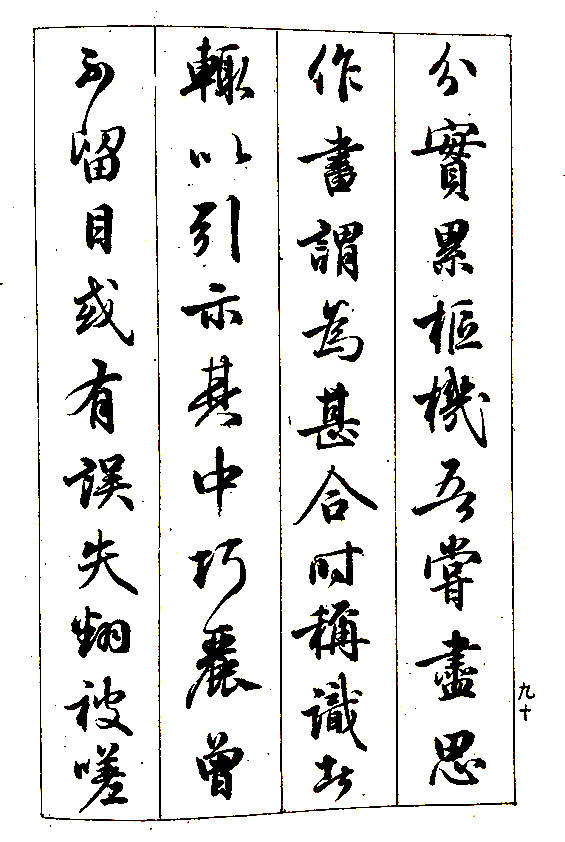 分實累樞機吾嘗盡思
作書謂為甚合時稱識者
輙以引示其中巧麗曾
不留目或有誤失翻被嗟
九十